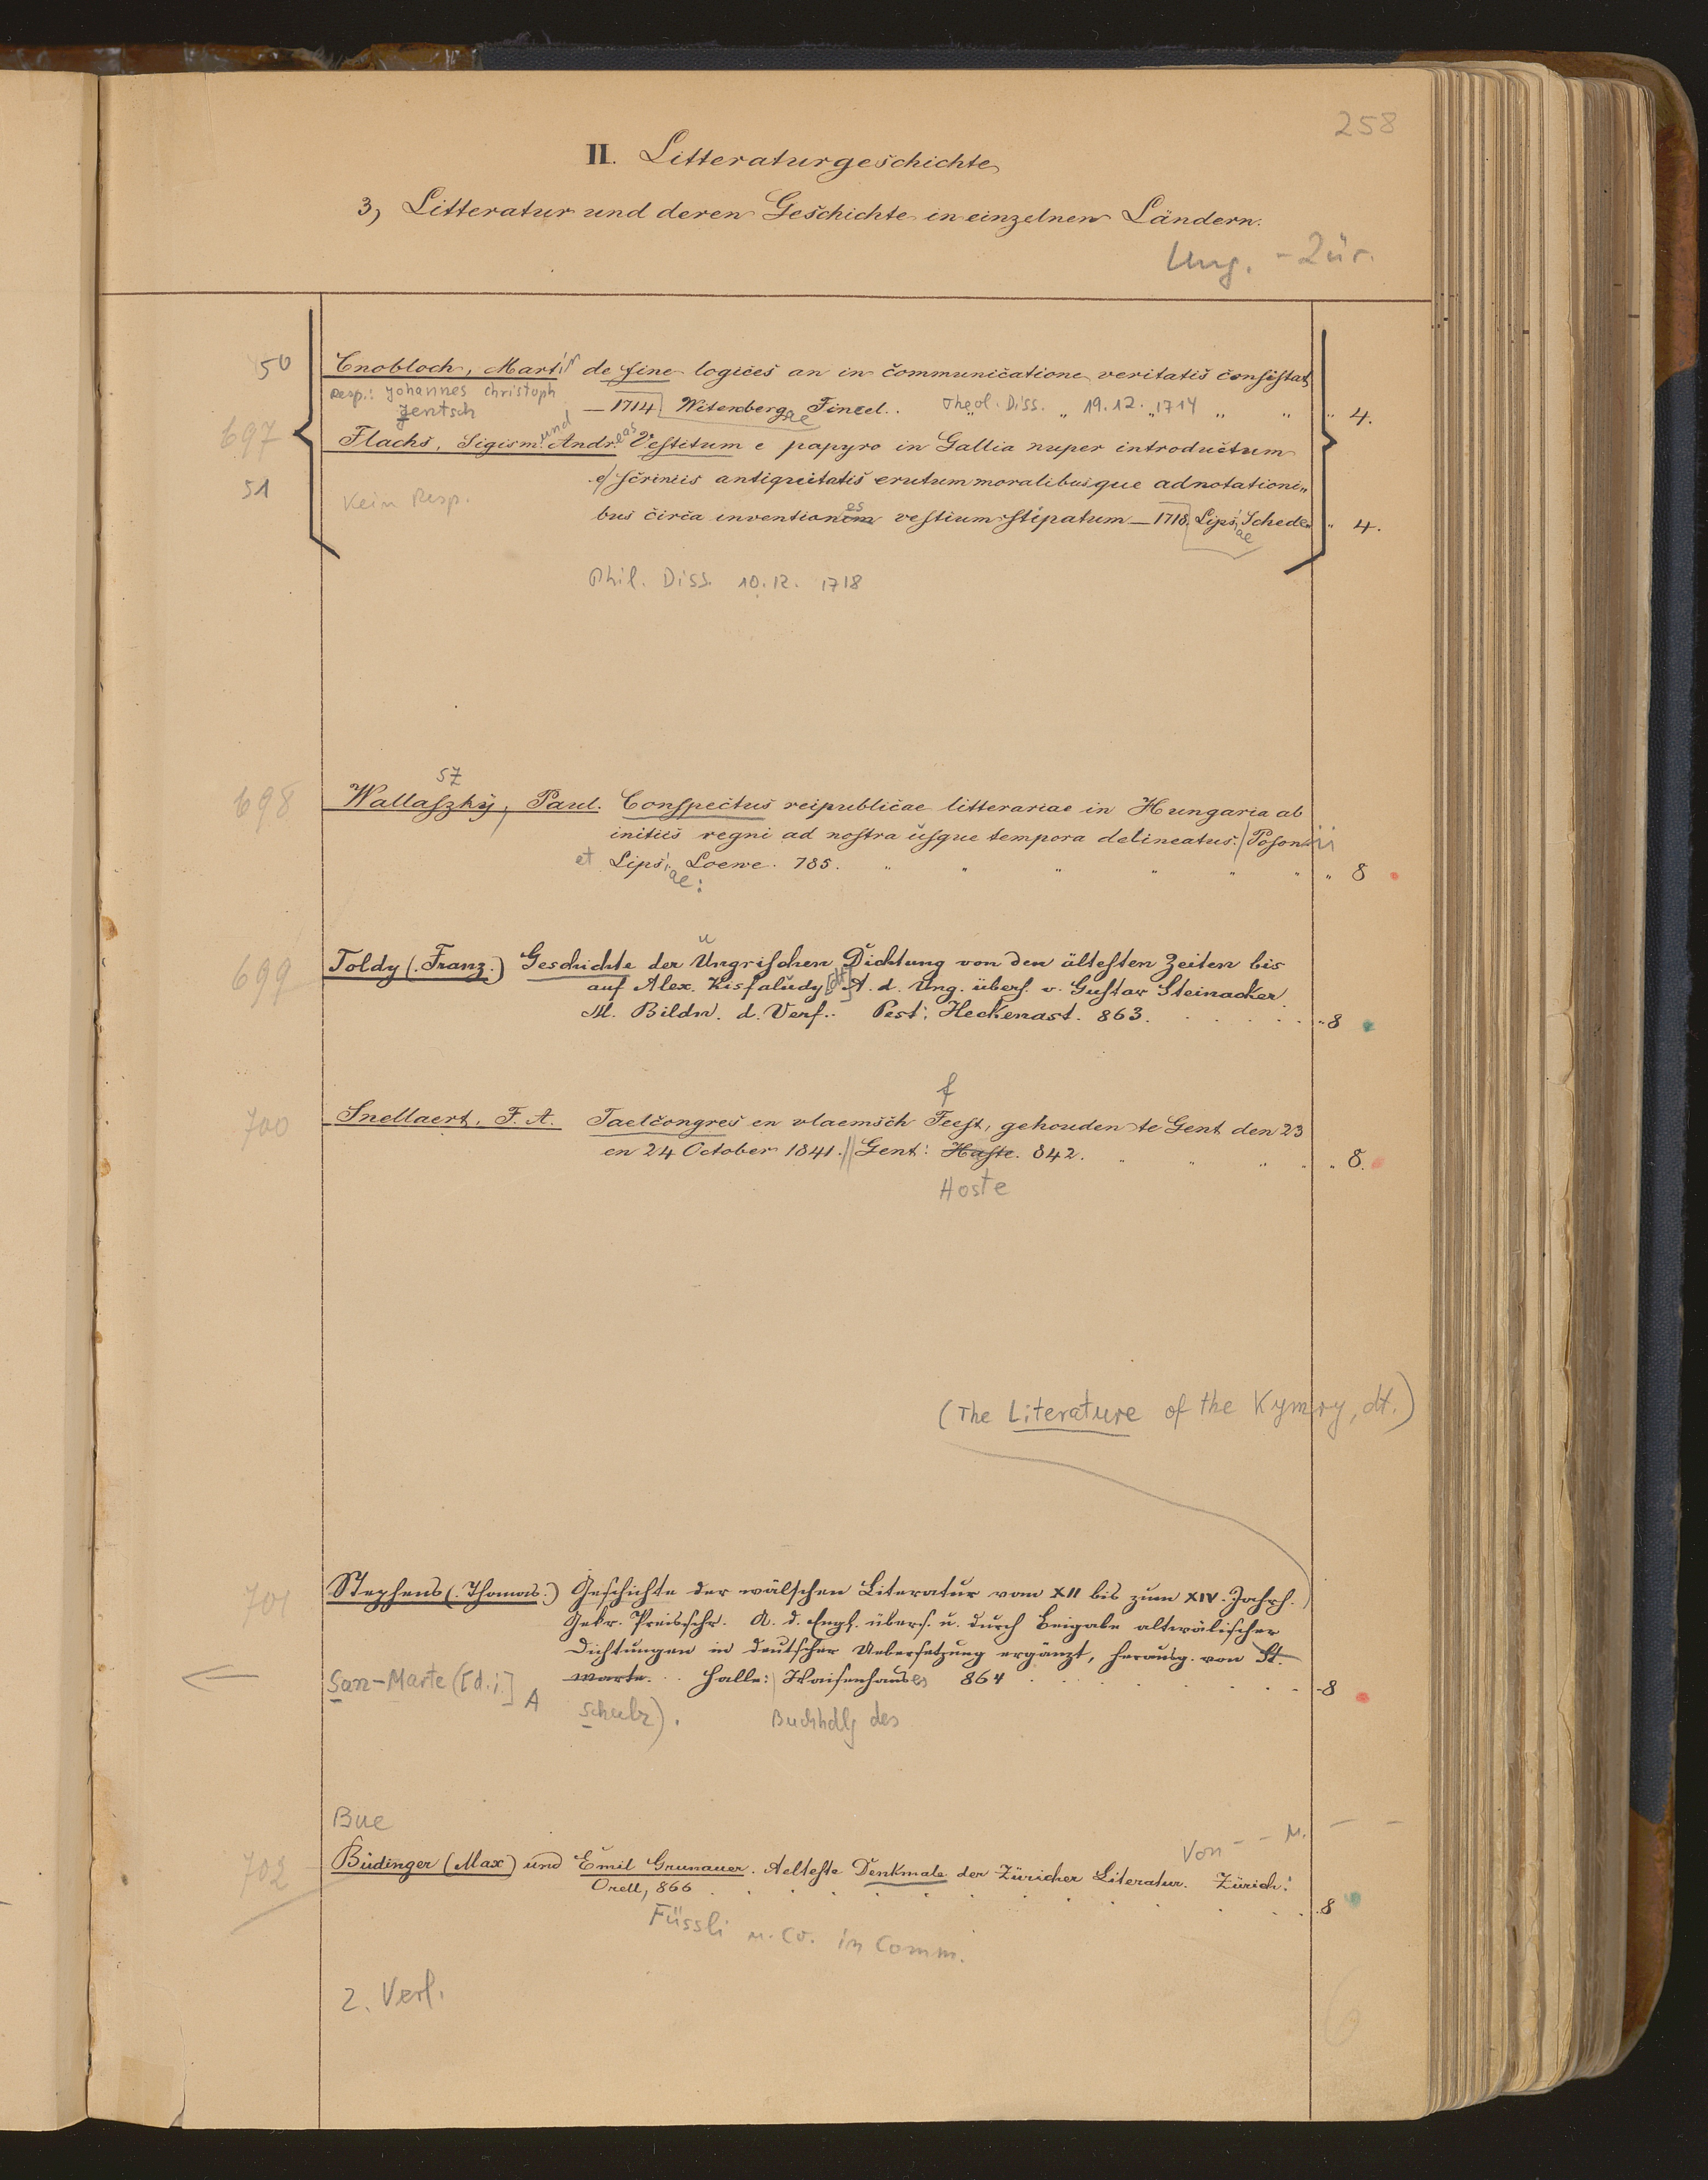 258
II. Litteraturgeschichte
3, Litteratur und deren Geschichte in einzelnen Ländern.
Ung. - Zür.
50 Cnobloch, Martin de fine logices an in communicatione veritatis consistat
Resp.: Johannes Christoph
Jentsch — 1714 Witenbergae Fincel. Theol. Diss. 19.12. 1714 " " " 4.
697 Flachs, Sigism. und Andreas Vestitum e papyro in Gallia nuper introductum
51 Kein Resp. e scriniis antiquitatis erutum moralibusque adnotationi„
bus circa inventiones vestium stipatum — 1718. Lipsiae Schede. " 4.
Phil. Diss. 10.12. 1718
sz
698 Wallaszhÿ, Paul. Conspectus reipublicae litterariae in Hungaria ab
initiis regni ad nostra usque tempora delineatus. Posonii
et Lipsiae: Loewe. 785. " " " " " " " 8
u
699 Toldy (Franz.) Geschichte der Ungrischen Dichtung von den ältesten Zeiten bis
auf Alex. Kisfaludy [dt] A. d. Ung. übers. v. Gustav Steinacker.
M. Bildn. d. Verf.. Pest: Heckenast. 863. " 8
f
700 Snellaert, F. A. Taelcongres en vlaemsch Feest, gehouden te Gent den 23
en 24 October 1841. Gent: Haste. 842. " " " " " 8.
Hoste
(The Literature of the Kymry, dt.)
701 Stephens (Thomas.) Geschichte der wälschen Literatur vom XII bis zum XIV. Jahrh.
Gekr. Preisschr. A. d. Engl. übers. u. durch Beigabe altwälischer
Dichtungen in deutscher Uebersetzung ergänzt, herausg. von St.
San-Marte ([d. i.] marte. Halle: Waisenhauses 864 8
A Schulz). Buchhdlg des
Bue
Von - - M. - -
702 Büdinger (Max) und Emil Grunauer. Aelteste Denkmale der Züricher Literatur. Zürich:
Orell, 866 8
Füssli u. Co. in Comm.
2. Verl.
6